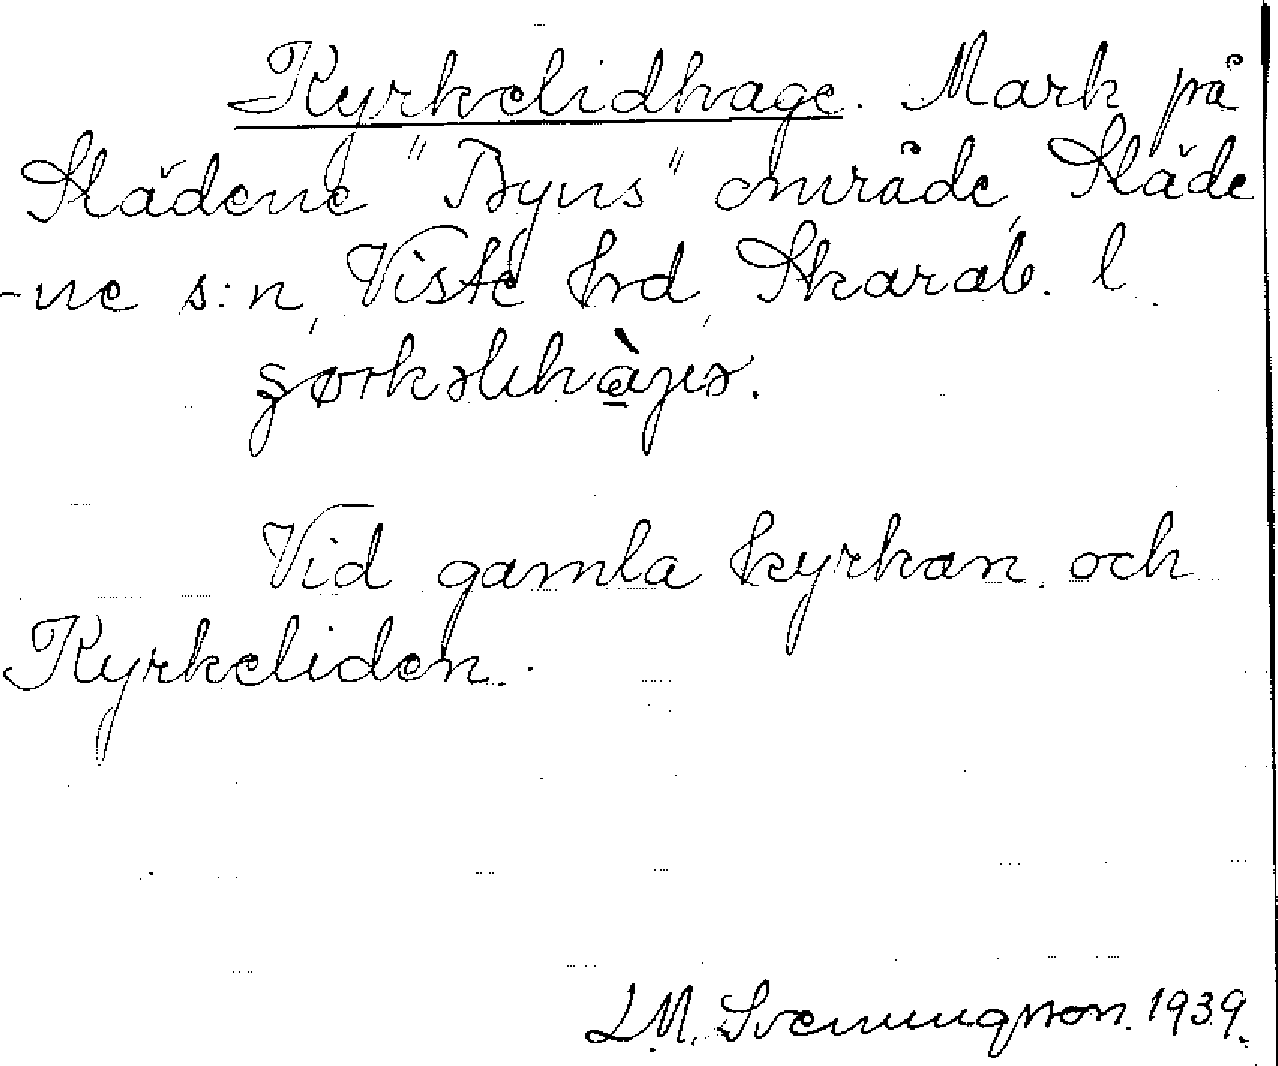 Kyrkelidhage. Mark på
Slädene "Byns" område, Släde
-ne s:n, Viste hd, Skarab. l.
Vid gamla kyrkan och
Kyrkeliden.
L.M. Svenungsson. 1939.